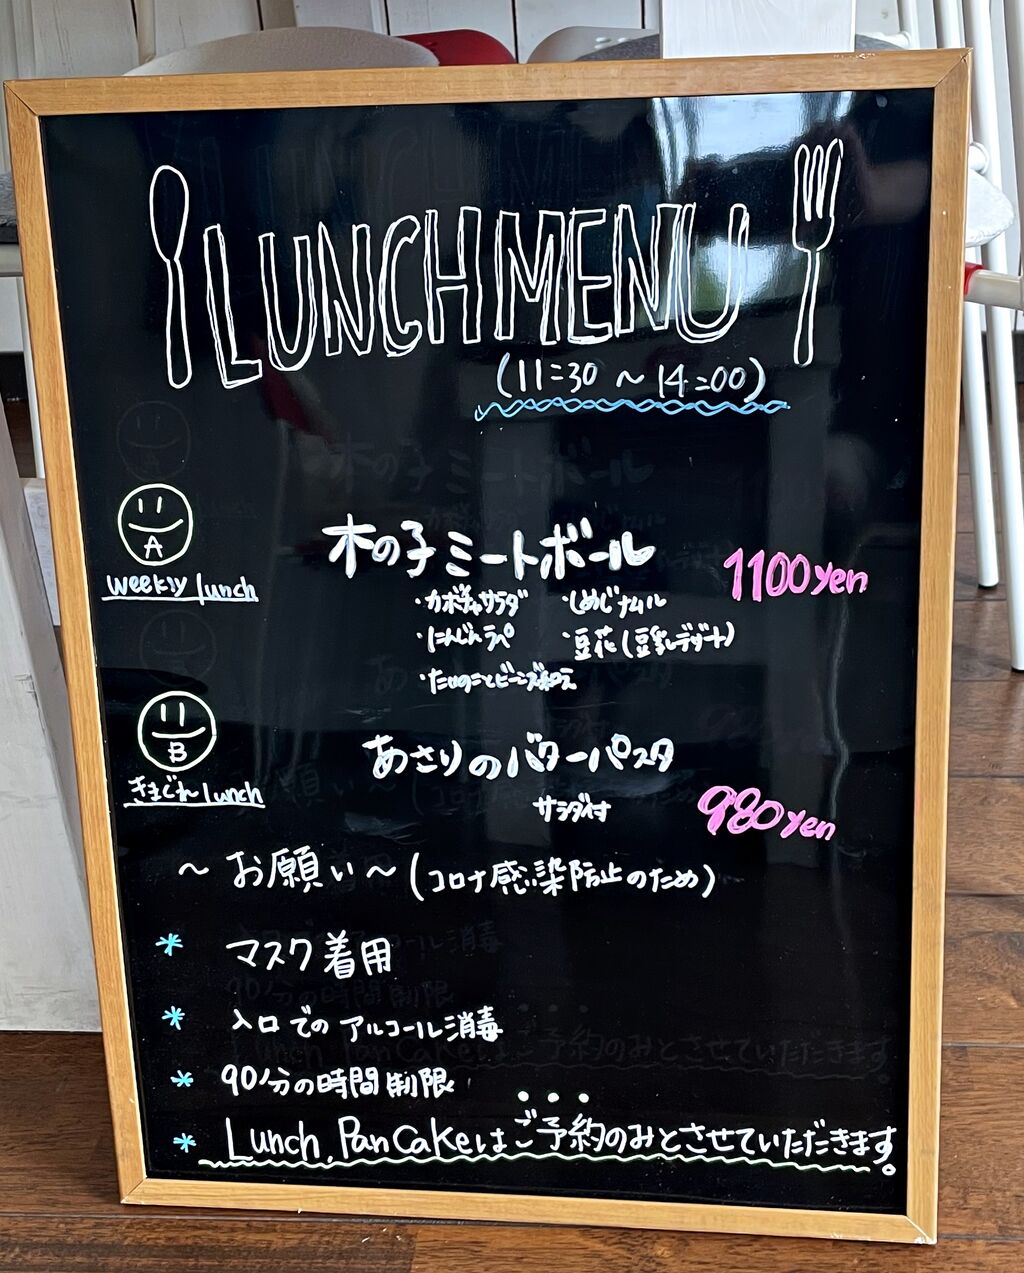 LUNCH MENU
(11:30 ～ 14:00)
A
weekly lunch
木の子ミートボール
1100yen
・カボチャサラダ ・しめじナムル
・にんじんラペ ・豆花(豆乳デザート)
・たけのことビーンズ和え
B
きまぐれ lunch
あさりのバターパスタ
サラダ付
980yen
～お願い～(コロナ感染防止のため)
* マスク着用
* 入口でのアルコール消毒
* 90分の時間制限
* Lunch, PanCakeはご予約のみとさせていただきます。